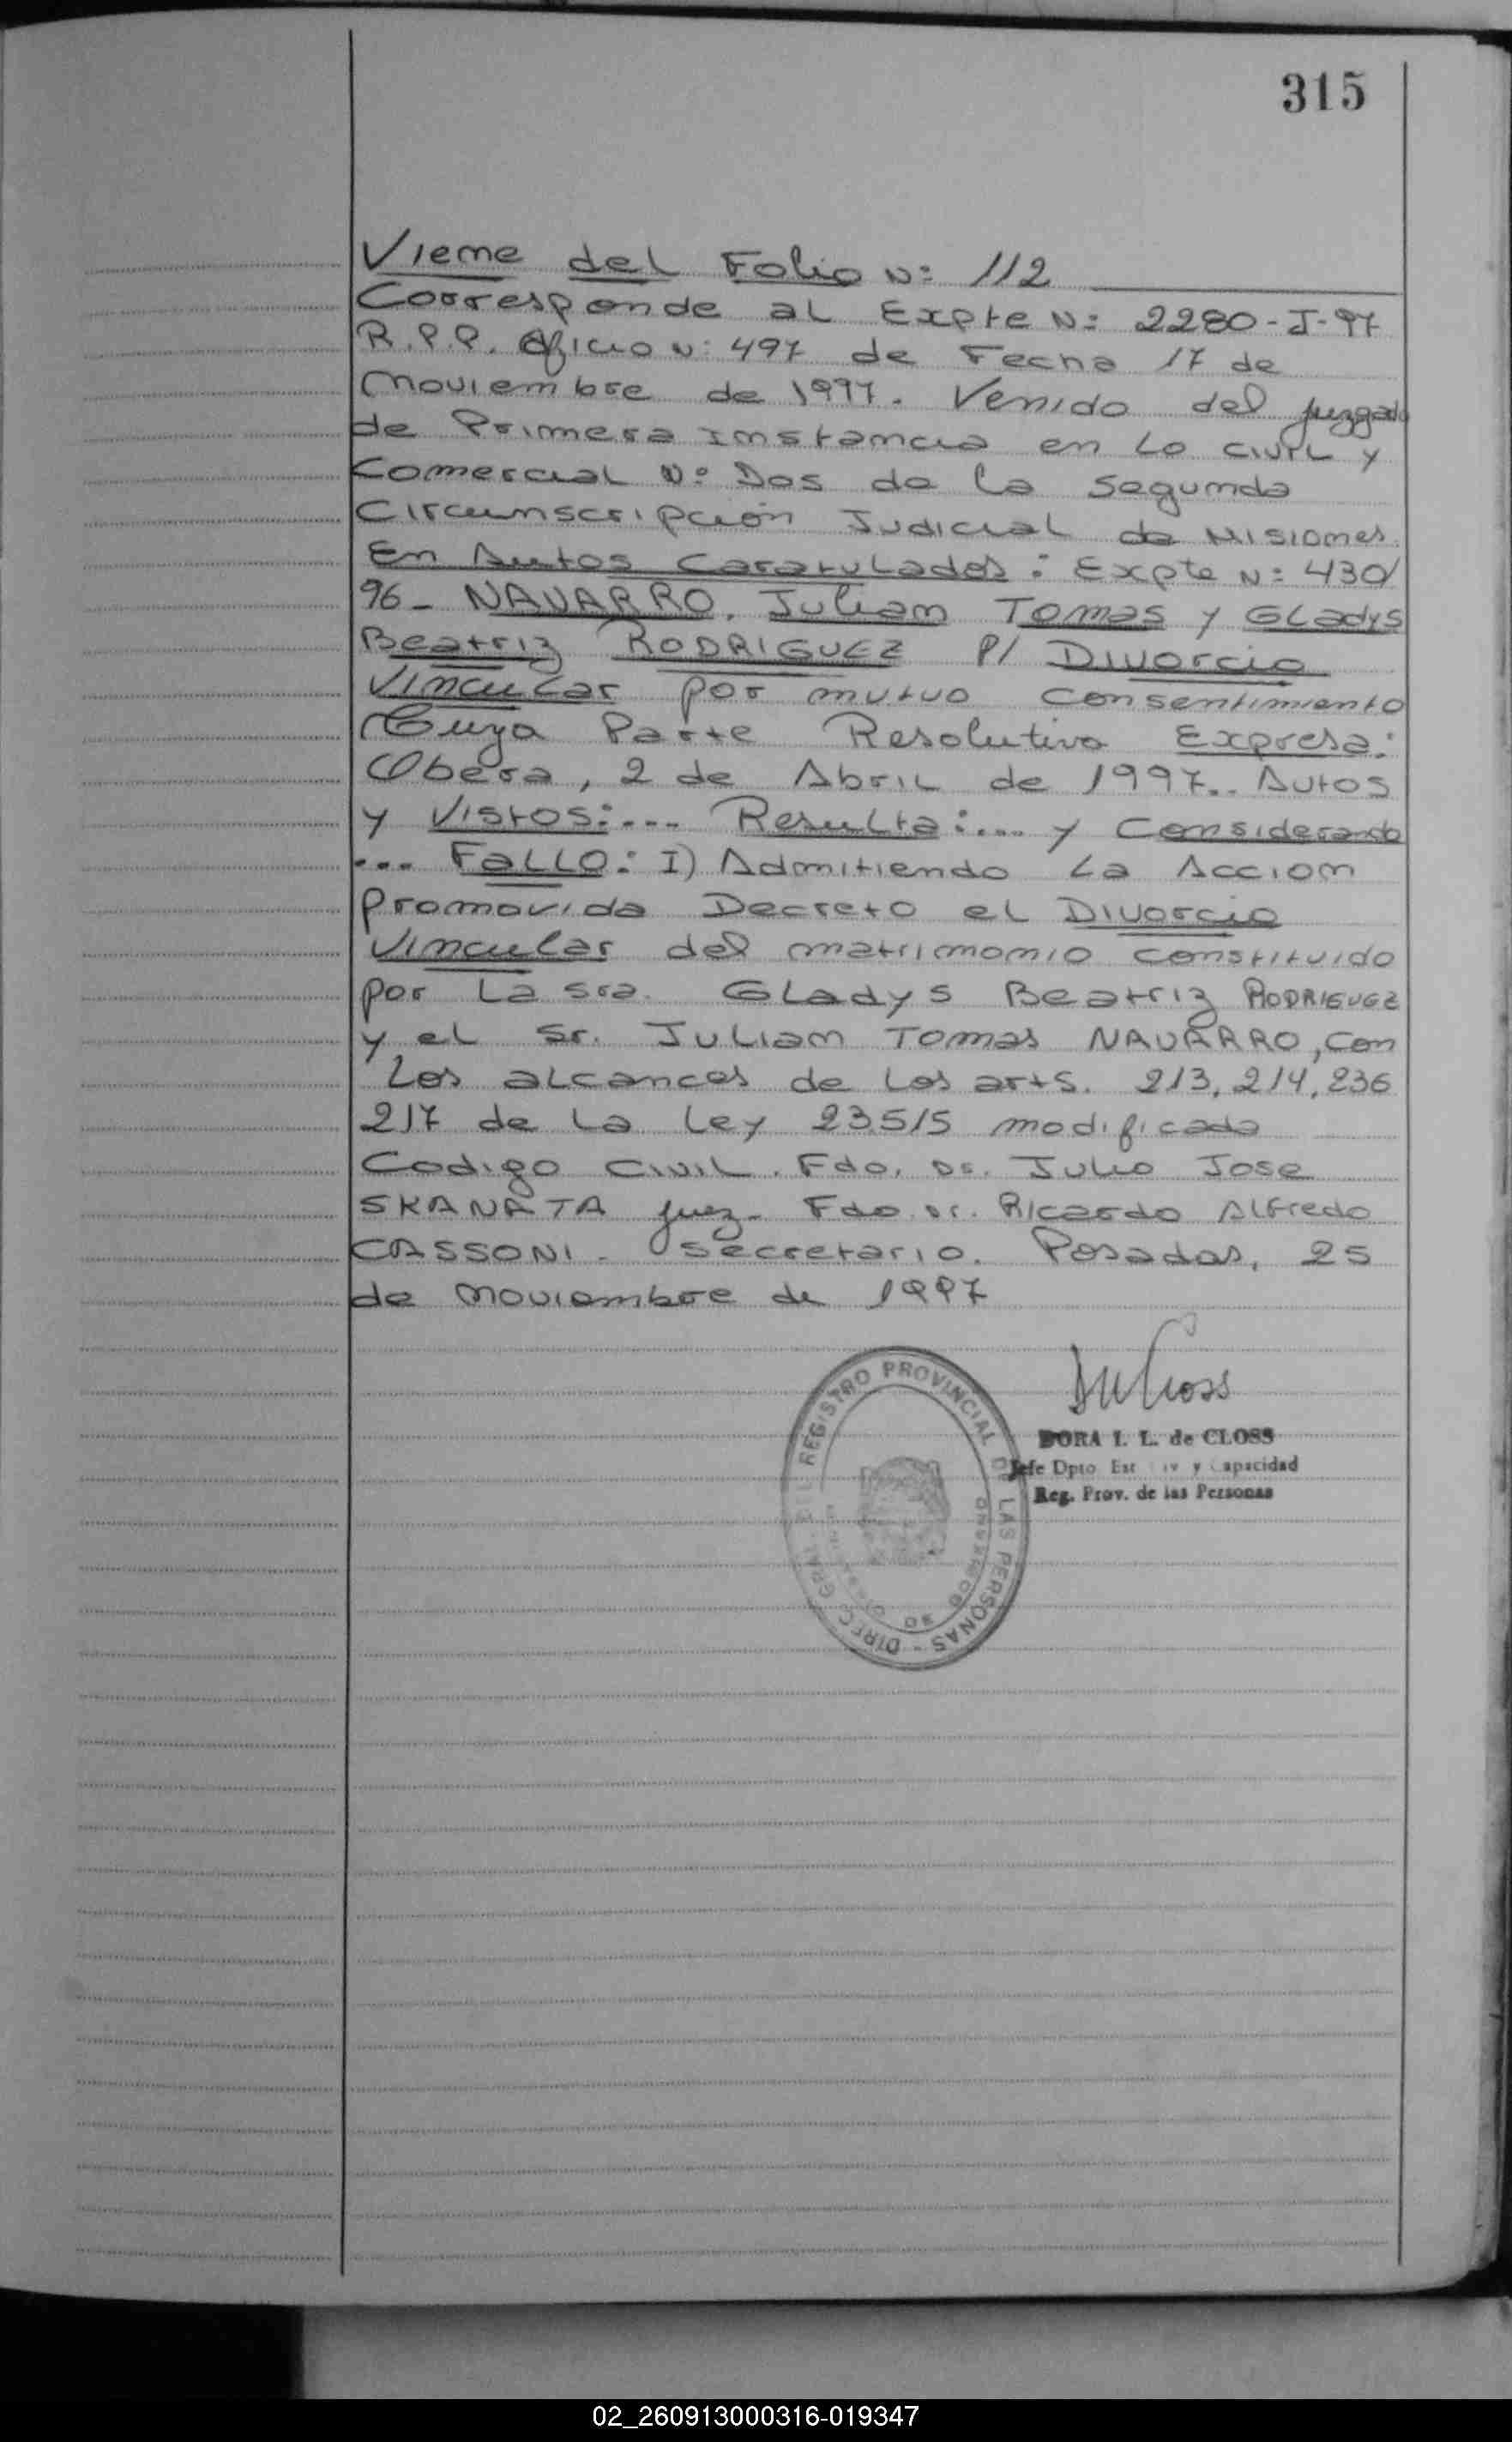 315
Viene del Folio N: 112
Corresponde al Expte N: 2280-J-97
R.P.P. Oficio N: 497 de Fecha 17 de
Noviembre de 1997. Venido del juzgado
de Primera Instancia en Lo civil y
Comercial N: Dos de la Segunda
Circunscripción Judicial de Misiones
En Autos Caratulados: Expte N: 430/
96- NAVARRO, Julian Tomas y Gladys
Beatriz RODRIGUEZ P/ Divorcio
Vincular por mutuo consentimiento
Cuya Parte Resolutiva Expresa:
Obera, 2 de Abril de 1997.. Autos
y Vistos:... Resulta:... y Considerando
... Fallo: I) Admitiendo La Accion
promovida Decreto el Divorcio
Vincular del matrimonio constituido
por La sra. Gladys Beatriz RODRIGUEZ
y el Sr. Julian Tomas NAVARRO, con
Los alcances de Los arts. 213, 214, 236
217 de La Ley 23.515 modificada
Codigo Civil. Fdo. Dr. Julio Jose
SKANATA juez- Fdo. Dr. Ricardo Alfredo
CASSONI- Secretario. Posadas, 25
de noviembre de 1997
DORA I. L. de CLOSS
Jefe Dpto Est Civ y Capacidad
Reg. Prov. de las Personas
REGISTRO PROVINCIAL DE LAS PERSONAS - DIREC. GRAL.
02_260913000316-019347